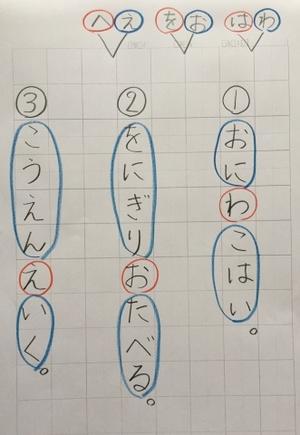 へえ をお はわ
①おにわこはい。
②をにぎりおたべる。
③こうえんえいく。